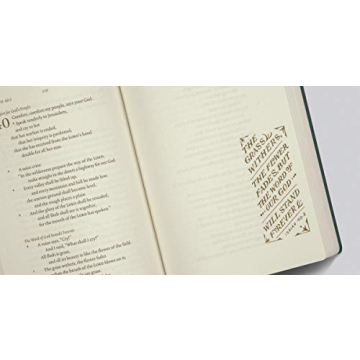 Comfort for God's People
40 Comfort, comfort my people, says your God.
Speak tenderly to Jerusalem,
and cry to her
that her warfare is ended,
that her iniquity is pardoned,
that she has received from the LORD's hand
double for all her sins.
A voice cries:
"In the wilderness prepare the way of the LORD;
make straight in the desert a highway for our God.
Every valley shall be lifted up,
and every mountain and hill be made low;
the uneven ground shall become level,
and the rough places a plain.
And the glory of the LORD shall be revealed,
and all flesh shall see it together,
for the mouth of the LORD has spoken."
The Word of God Stands Forever
A voice says, "Cry!"
And I said, "What shall I cry?"
All flesh is grass,
and all its beauty is like the flower of the field.
The grass withers, the flower fades
when the breath of the LORD blows on it;
THE
GRASS
WITHERS,
THE FLOWER
FADES, BUT
THE WORD OF
OUR GOD
WILL STAND
FOREVER
ISAIAH 40:8